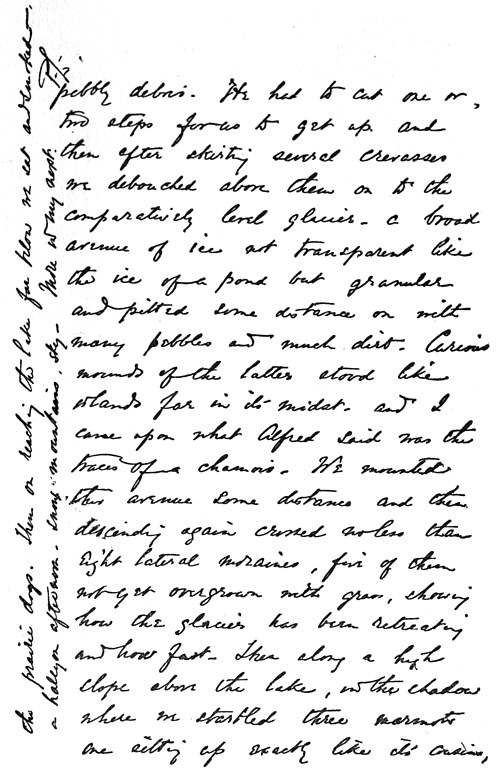 pebbly debris. He had to cut one or
two steps for us to get up and
then after skirting several crevasses
we debouched above them on to the
comparatively level glacier - a broad
avenue of ice not transparent like
the ice of a pond but granular
and pitted some distance on with
many pebbles and much dirt. Curious
mounds of the latter stood like
islands far in its midst. and I
came upon what Alfred said was the
traces of a chamois. We mounted
this avenue some distance and then
descending again crossed no less than
Eight lateral moraines, five of them
not yet overgrown with grass, showing
how the glacier has been retreating
and how fast. Then along a high
slope above the lake, in the shadow
where we startled three marmots
one sitting up exactly like its cousins,
the prairie dogs. Then on reaching the lake far below we sat and smoked -
a halcyon afternoon. snow mountains, sky - More in my next.